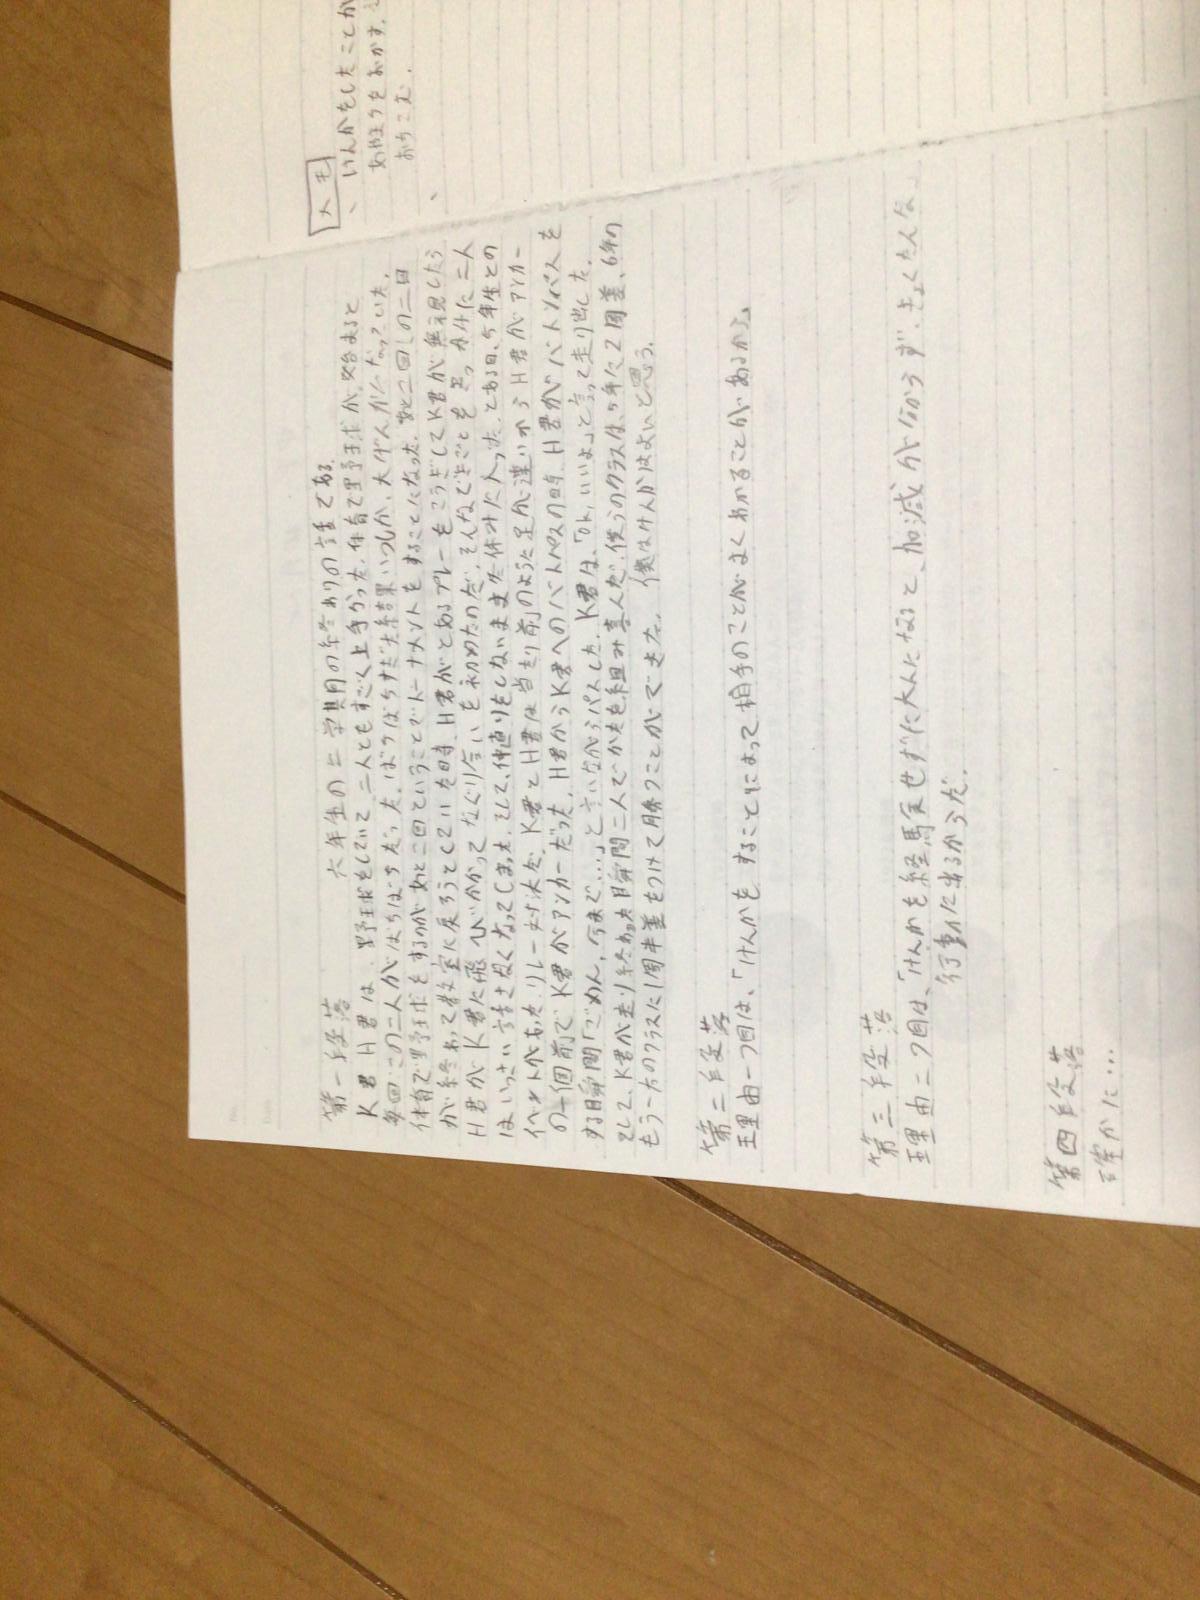 第一段落
六年生の二学期の終わりの話である。
K君H君は、野球をしていて二人ともすごく上手かった。体育で野球が始まると
毎回この二人がばちばちだった。ばちばちすぎた結果いつしか、大げんかになっていた。
体育で野球をするのがあと二回ということでトーナメントをすることになった。あと二回しの二回
が終わって教室に戻ろうとしていた時、H君がとあるプレーをこうぎしてK君が無視したら
H君がK君に飛びかかってなぐり合いを初めたのだ。そんなできごとをきっかけに二人
はいっさい話さなくなってしまった。そして、仲直りをしないまま冬休みに入った。とある日、5年生との
イベントがあった。リレー対決だ。K君とH君は当たり前のように足が速いからH君がアンカー
の一個前で、K君がアンカーだった。H君からK君へのバトンパスの時、H君がバトンパスを
する瞬間「ごめん、今まで…。」と言いながらパスした。K君は、「OK、いいよ」と言って走り出した。
そして、K君が走り終わった瞬間二人でかたを組み喜んだ。僕らのクラスは、5年に2周差、6年の
もう一方のクラスに1周半差をつけて勝つことができた。 僕はけんかはよいと思う。
第二段落
理由一つ目は、「けんかを することによって相手のことがよくわかることがあるから」。
第三段落
理由二つ目は、「けんかを経験せずに大人になると、加減が分からず、きょくたんな
行動に出るからだ。
第四段落
確かに…
メモ
、けんかをしたことが
あやまりをおかす。
おちこむ。
、